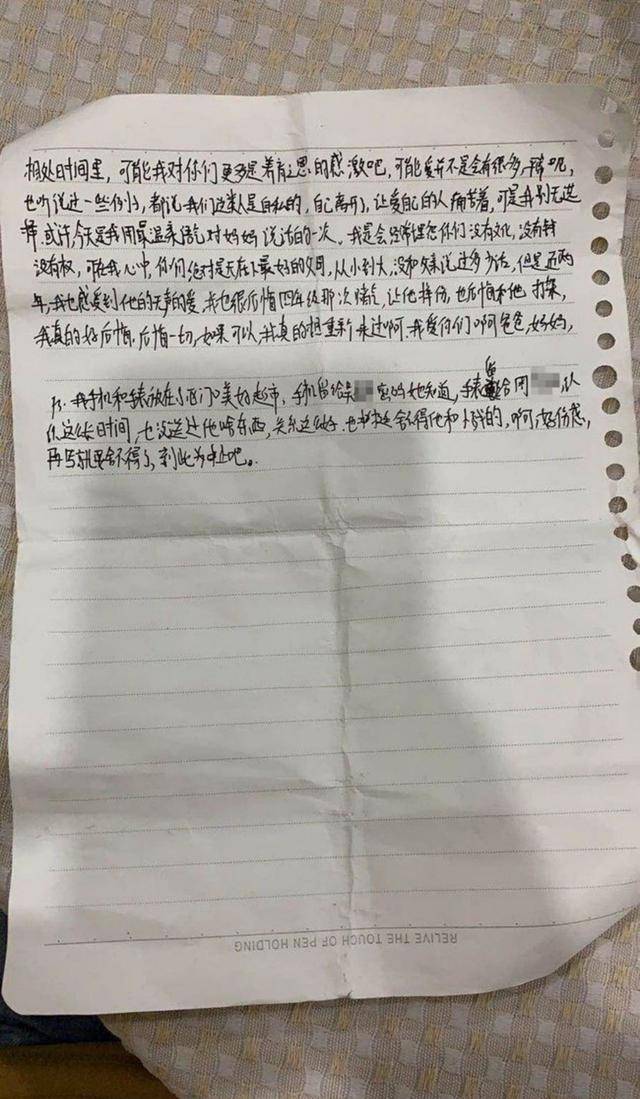 相处时间里，可能我对你们更多是着有之恩的感激吧，可能爱并不是会有很多，辞呢，
也听说过一些份子，都说我们这类人是自私的，自己离开了，让爱自己的人痛苦着，可是我别无选
择.或许今天是我用最温柔语气对妈妈说话的一次，我是会经常埋怨你们没有文化，没有钱
没有权，可在我心中，你们绝对是天在下最好的父母，从小到大，没和爸爸说过多少话，但是这两
年，我也感受到他的无声的爱，我也很后悔四年级那次赌气，让他持伤，也后悔和他打架，
我真的好后悔.后悔一切，如果可以，我真的想重新来过啊.我爱你们啊爸爸，妈妈，
Ps.我手机和手表放在小西门口美好超市，手机留给吴 密码她知道，手表留给周 认
识这么长时间，也没送过他啥东西，关系这么好.也 是舍不得他和 的，啊，好伤感，
再写就要舍不得了，到此为止吧。
RELIVE THE TOUCH OF PEN HOLDING